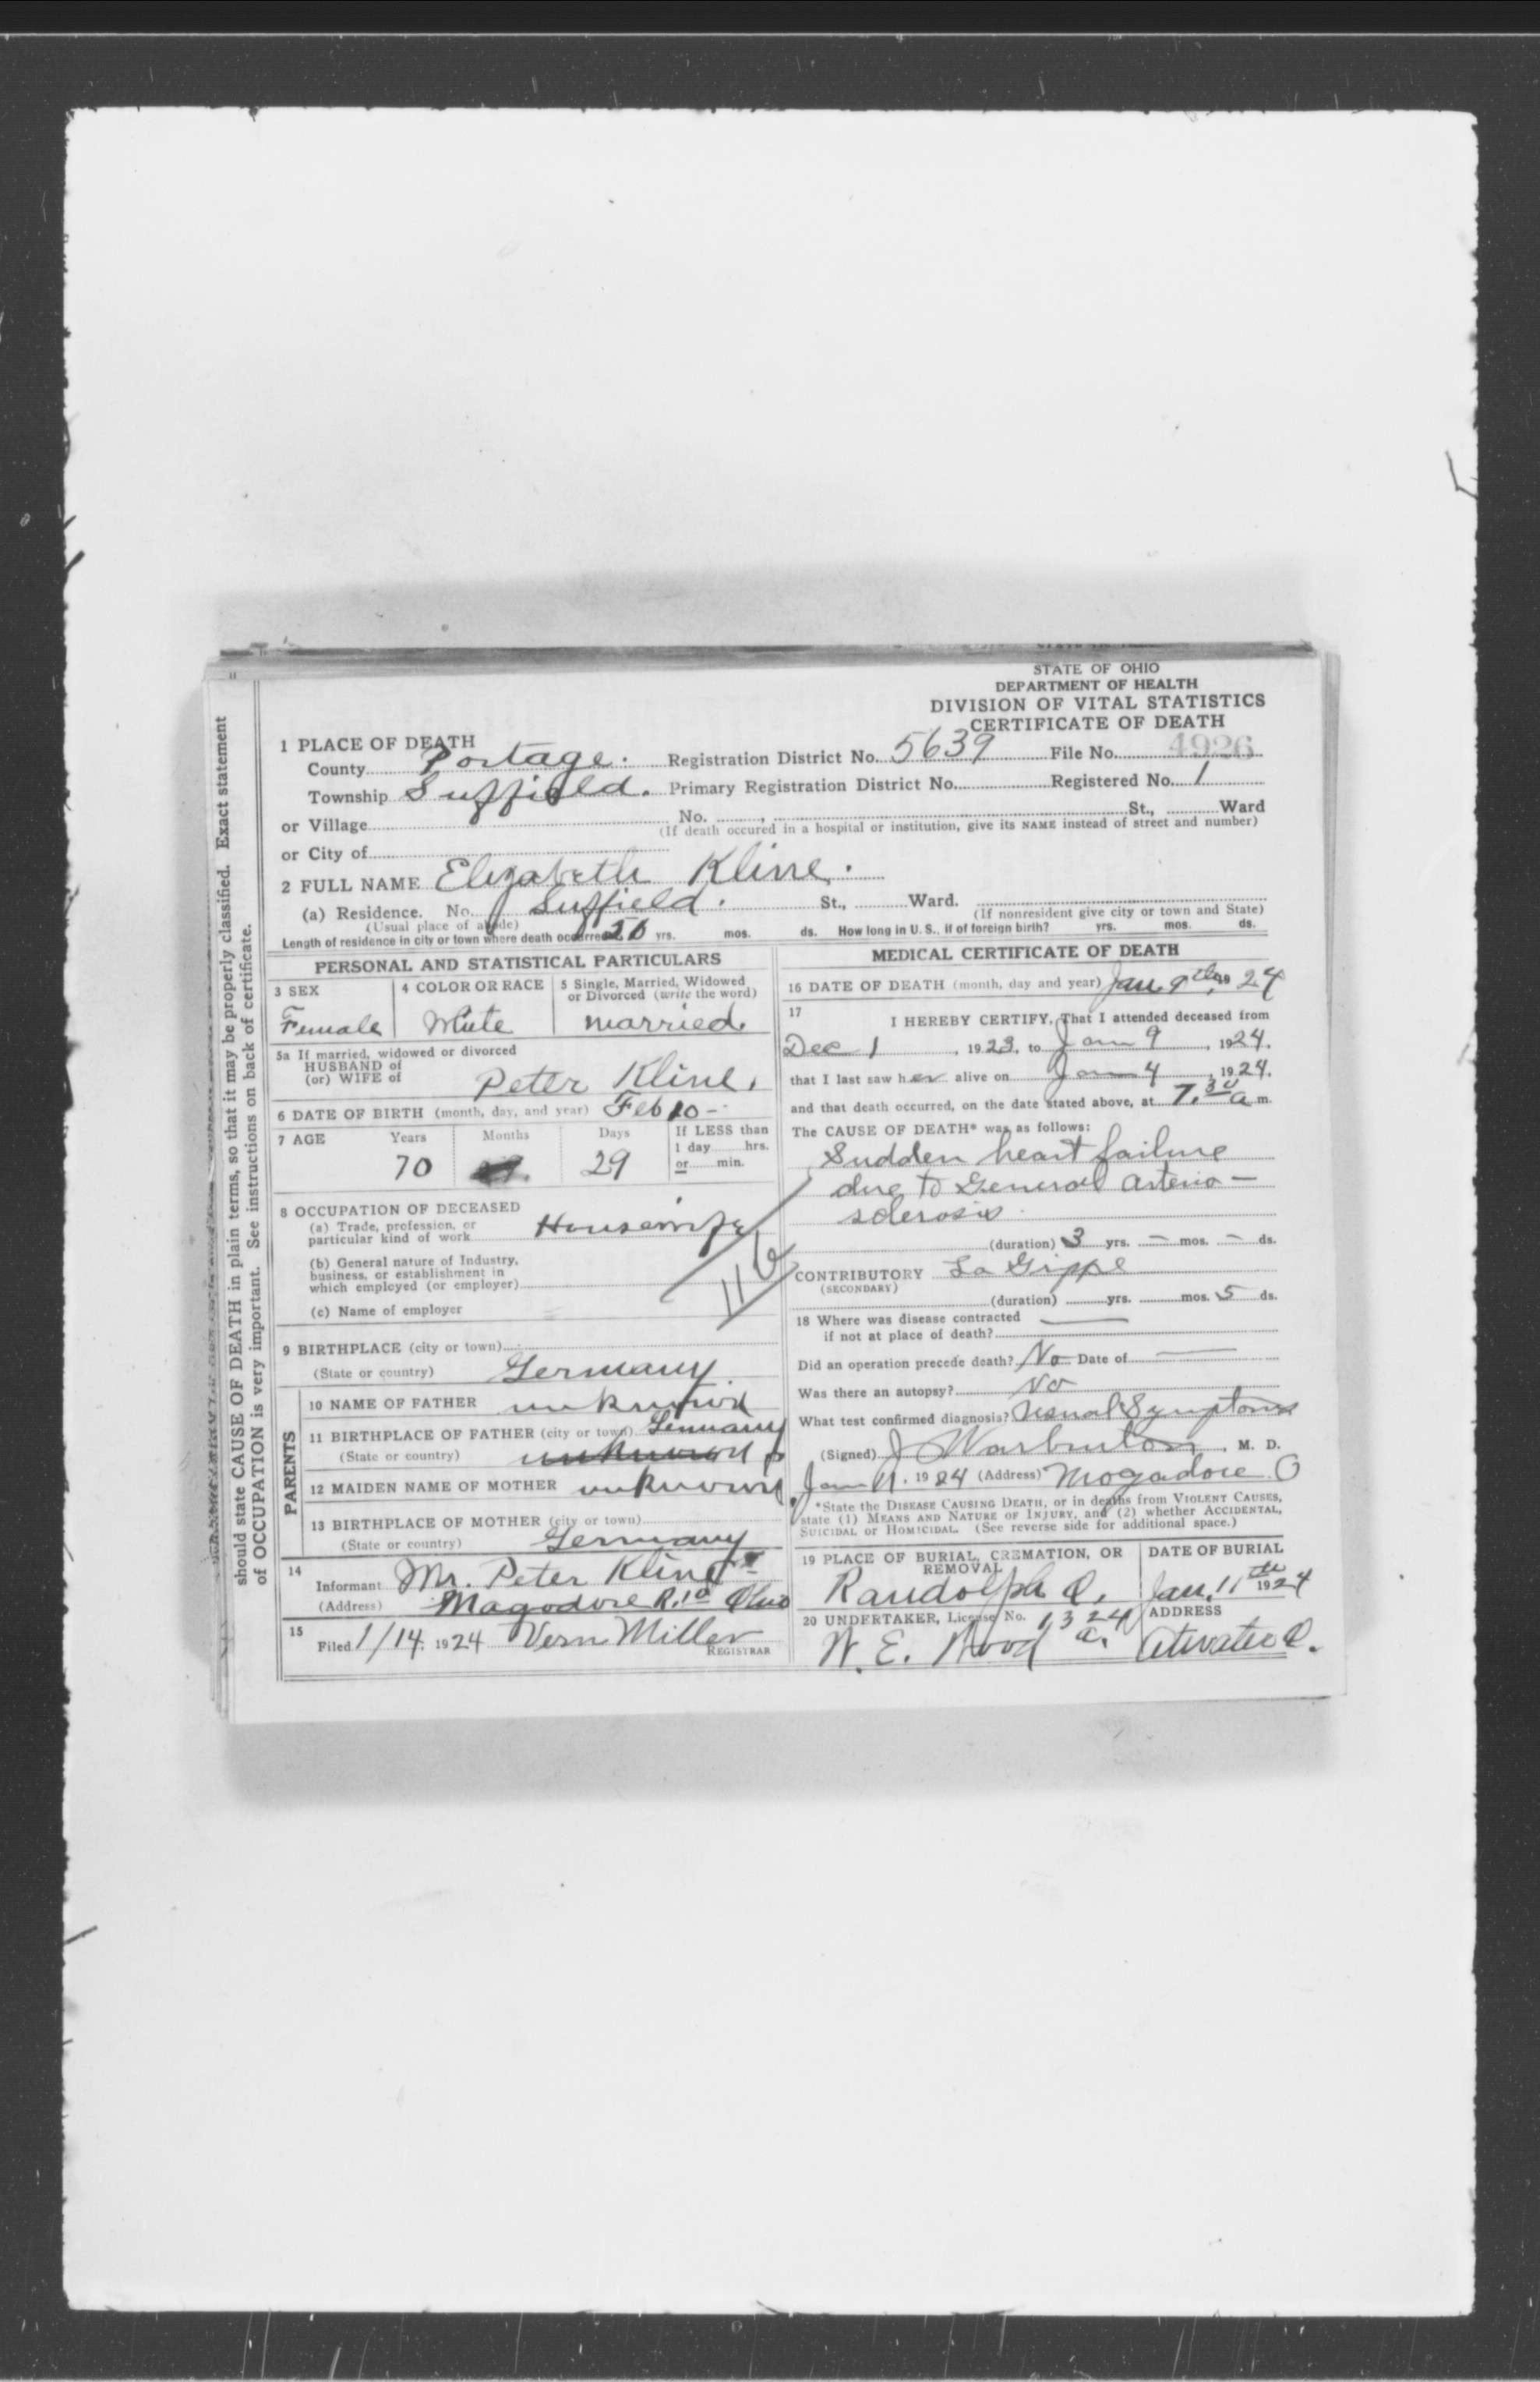 should state CAUSE OF DEATH in plain terms, so that it may be properly classified. Exact statement
of OCCUPATION is very important. See instructions on back of certificate.
STATE OF OHIO
DEPARTMENT OF HEALTH
DIVISION OF VITAL STATISTICS
CERTIFICATE OF DEATH
1 PLACE OF DEATH
County Portage. Registration District No. 5639 File No. 4926
Township Suffield. Primary Registration District No. Registered No. 1
or Village No. , St., Ward
(If death occured in a hospital or institution, give its NAME instead of street and number)
or City of
2 FULL NAME Elizabeth Kline.
(a) Residence. No. Suffield. St., Ward.
(Usual place of abode) (If nonresident give city or town and State)
Length of residence in city or town where death occurred yrs. mos. ds. How long in U. S., if of foreign birth? yrs. mos. ds.
PERSONAL AND STATISTICAL PARTICULARS
3 SEX
Female
4 COLOR OR RACE
White
5 Single, Married, Widowed
or Divorced (write the word)
married.
5a If married, widowed or divorced
HUSBAND of
(or) WIFE of Peter Kline.
6 DATE OF BIRTH (month, day, and year) Feb 10 -
7 AGE Years Months Days If LESS than
1 day hrs.
70 29 or min.
8 OCCUPATION OF DECEASED
(a) Trade, profession, or
particular kind of work Housewife
(b) General nature of Industry,
business, or establishment in
which employed (or employer)
(c) Name of employer
9 BIRTHPLACE (city or town)
(State or country) Germany.
PARENTS
10 NAME OF FATHER unknown
11 BIRTHPLACE OF FATHER (city or town) Germany
(State or country) unknown
12 MAIDEN NAME OF MOTHER unknown
13 BIRTHPLACE OF MOTHER (city or town)
(State or country) Germany
14
Informant Mr. Peter Kline
(Address) Magodore R.10 Ohio
15
Filed 1/14. 1924 Vern Miller
REGISTRAR
MEDICAL CERTIFICATE OF DEATH
16 DATE OF DEATH (month, day and year) Jan. 9th, 1924
17
I HEREBY CERTIFY, That I attended deceased from
Dec 1, 1923, to Jan 9, 1924.
that I last saw her alive on Jan 4, 1924,
and that death occurred, on the date stated above, at 7.30 a m.
The CAUSE OF DEATH* was as follows:
Sudden heart failure
due to General arterio-
sclerosis.
(duration) 3 yrs. - mos. - ds.
116
CONTRIBUTORY La Grippe
(SECONDARY)
(duration) yrs. mos. 5 ds.
18 Where was disease contracted
if not at place of death?
Did an operation precede death? No Date of
Was there an autopsy? No
What test confirmed diagnosis? Usual Symptoms
(Signed) J Warburton, M. D.
Jan 11. 1924 (Address) Mogadore O
*State the DISEASE CAUSING DEATH, or in deaths from VIOLENT CAUSES,
state (1) MEANS AND NATURE OF INJURY, and (2) whether ACCIDENTAL,
SUICIDAL or HOMICIDAL. (See reverse side for additional space.)
19 PLACE OF BURIAL, CREMATION, OR
REMOVAL
Randolph O.
DATE OF BURIAL
Jan. 11th 1924
20 UNDERTAKER, License No. 1324 a.
W. E. Wood
ADDRESS
Atwater O.